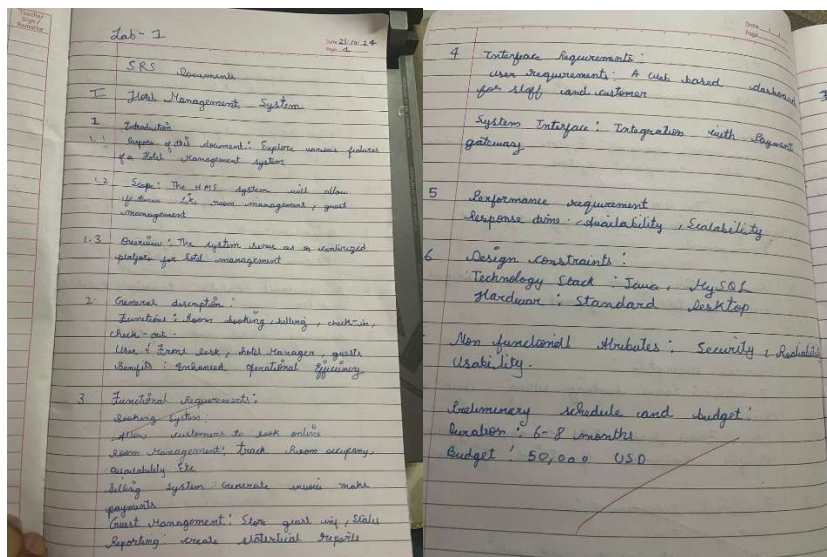 Teacher
Sign /
Remarks
Lab - 1
Date 21.10.24
Page 1
SRS Documents
I Hotel Management System
1 Introduction
1.1 Purpose of this document: Explore various features
of a Hotel Management system
1.2 Scope: The HMS system will allow
features like room management, guest
management
1.3 Overview: The system serve as a centralized
platform for hotel management
2. General description:
Functions: Room booking, billing, check-in,
check-out.
User: Front desk, hotel Manager, guests
Benefits: enhanced operational Efficiency
3 Functional Requirements:
Booking System:
Allow customers to book online
Room Management: Track Room occupany,
availability etc
Billing System: Generate invoice make
payments
Guest Management: Store guest info,
Reporting: create statistical reports
Date
Page
4 Interface Requirements:
User requirements: A web based dashboard
for staff and customer
System Interface: Integration with Payment
gateway
5 Performance requirement
Response time: Availability, Scalability
6 Design constraints:
Technology Stack: Java, MySQL
Hardware: Standard Desktop
Non functional Attributes: Security, Reliability
Usability.
Preliminary schedule and budget:
Duration: 6-8 months
Budget: 50,000 USD